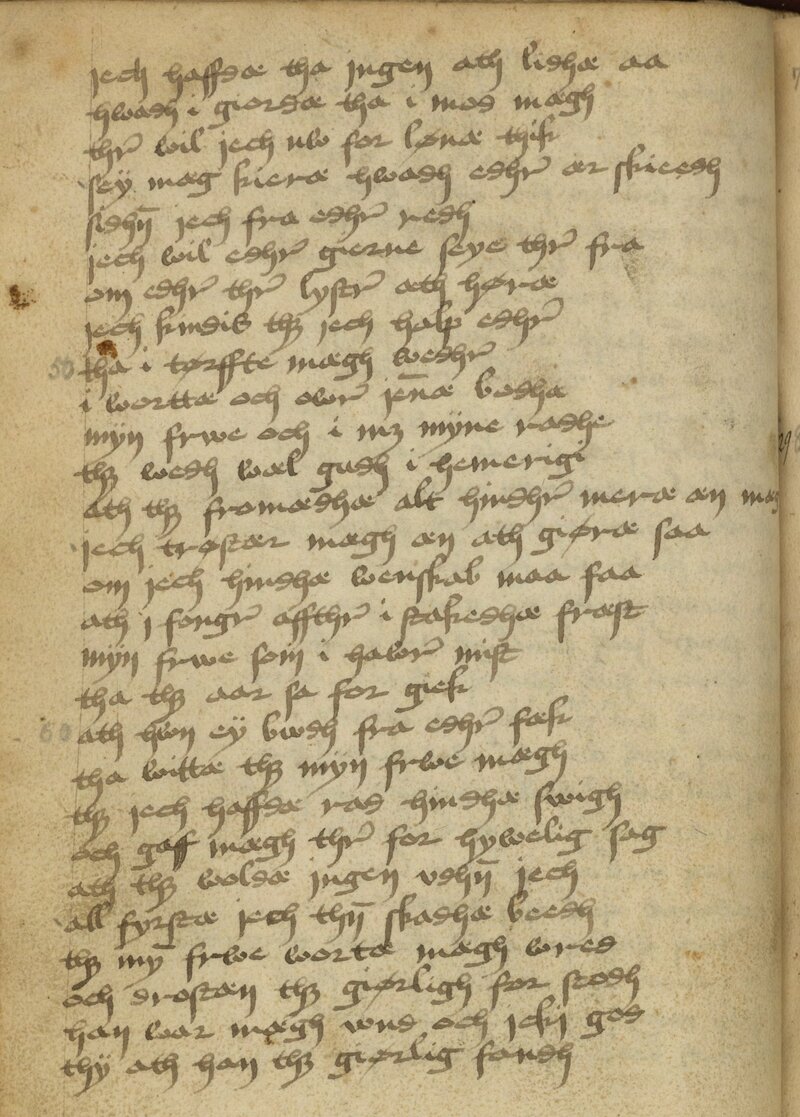 jech haffdæ tha jngen ath lidhæ aa
hwadh i giordæ tha i mod mægh
thr̄ wil jech nw for lønæ thik
seÿ mæg kieræ hwadh edhr̄ ær skieedh
sidhn̄ jech fra edhr̄ redh
jech wil edhr̄ gierne seye thr̄ fra
om edhr̄ thr̄ lystr̄ ath høræ
jech kindis thꝫ jech halp edhr̄
50 tha i tørffte mægh wedhr̄
i worttæ och owr̄ jen̄æ bodha
mÿn frwe och i mꝫ mÿne radhe
thꝫ wedh wæl gudh i hemerigi
ath thꝫ fromædhæ alt hindhr̄ meræ æn
jech trøstær mægh æn ath giøræ saa
om jech hindhæ wenskab maa faa
ath j fongr̄ affthr̄ i stakedhæ fræst
mÿn frwe som i hawr̄ mist
tha thꝫ aar sa for giek
60 ath hwn eÿ bwdh fra edhr̄ fæk
tha wittæ thꝫ mÿn frwe mægh
thꝫ jech haffdæ rad hindhæ swigh
och gaff mægh thr̄ for hywelig sag
ath thꝫ woldæ jngen vdhn̄ jech
all fyrstæ jech thn̄ skadhæ beedh
thꝫ mȳ frwe wortæ mægh wred
och drostæn thꝫ giørligh for stodh
han war mægh wnd och jckj god
thÿ ath han thꝫ giørlig fandh